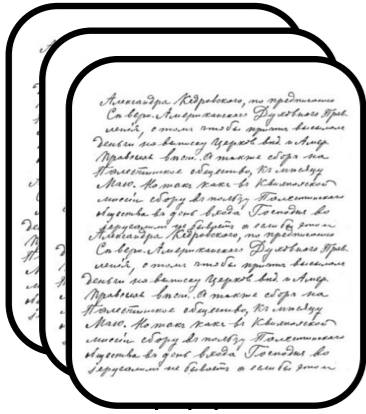 Александра Кедровского, по предписанію
Северо-Американскаго Духовнаго Прав
ленія, о томъ чтобы причты высылали
деньги на выписку Церков. вѣд. и Амер.
Правосл. вѣст. А также сбора на
Палестинское общество, къ мѣсяцу
Маю. Но такъ какъ въ Квихпакской
миссіи сбору въ пользу Палестинскаго
общества въ день входа Господня во
іерусалимъ не бываетъ а если бы этого
Александра Кедровского, по предписанію
Северо-Американскаго Духовнаго Прав
ленія, о томъ чтобы причты высылали
деньги на выписку Церков. вѣд. и Амер.
Правосл. вѣст. А также сбора на
Палестинское общество, къ мѣсяцу
Маю. Но такъ какъ въ Квихпакской
миссіи сбору въ пользу Палестинскаго
общества въ день входа Господня во
іерусалимъ не бываетъ а если бы этого